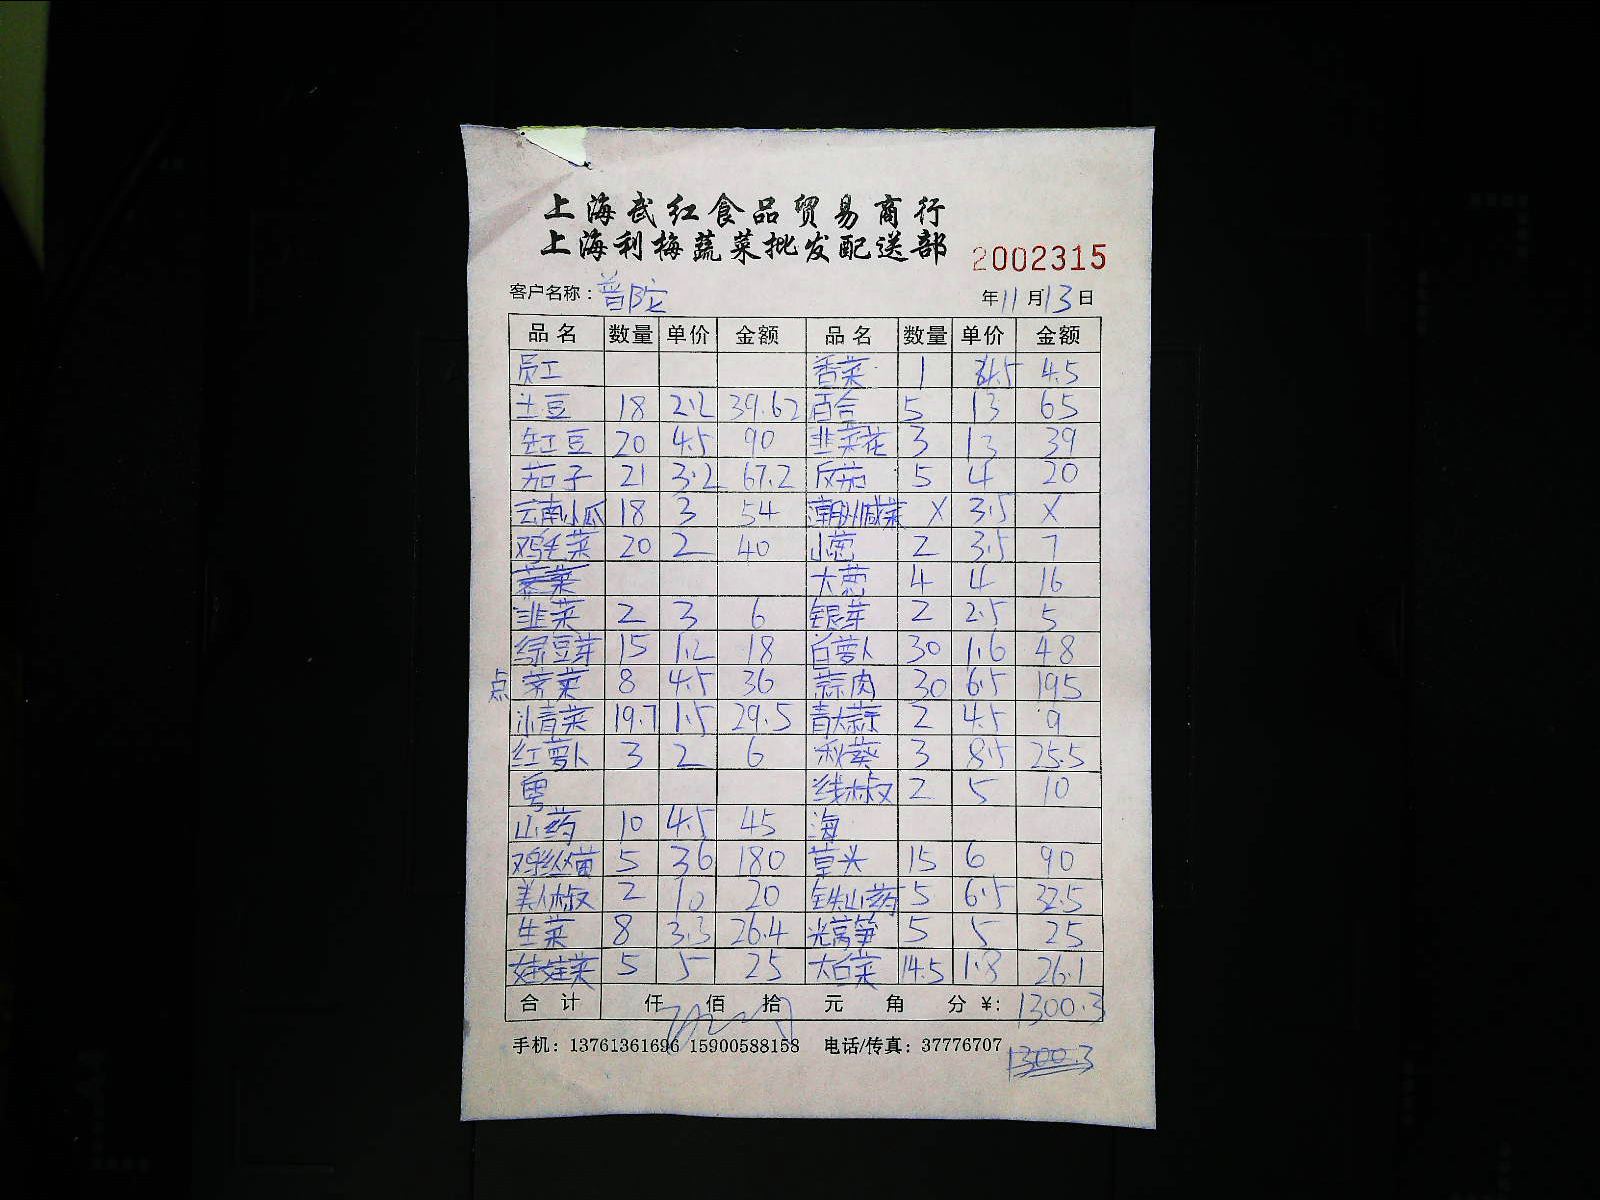 上海武红食品贸易商行
上海利梅蔬菜批发配送部 2002315
客户名称：普陀 年11月13日
品名 数量 单价 金额 品名 数量 单价 金额
员工 香菜 1 4.5 4.5
土豆 18 2.2 39.62 百合 5 13 65
缸豆 20 4.5 90 韭菜花 3 13 39
茄子 21 3.2 67.2 反茄 5 4 20
云南小瓜 18 3 54 潮州咸菜 X 3.5 X
鸡毛菜 20 2 40 小葱 2 3.5 7
荠菜 大葱 4 4 16
韭菜 2 3 6 银芽 2 2.5 5
绿豆芽 15 1.2 18 白萝卜 30 1.6 48
点 荠菜 8 4.5 36 蒜肉 30 6.5 195
小青菜 19.7 1.5 29.5 青大蒜 2 4.5 9
红萝卜 3 2 6 秋葵 3 8.5 25.5
粤 线椒 2 5 10
山药 10 4.5 45 海
鸡纵菌 5 36 180 草头 15 6 90
美人椒 2 10 20 铁山药 5 6.5 32.5
生菜 8 3.3 26.4 光莴笋 5 5 25
娃娃菜 5 5 25 大白菜 14.5 1.8 26.1
合计 仟 佰 拾 元 角 分 ¥: 1300.3
手机：13761361696 15900588158 电话/传真：37776707
1300.3